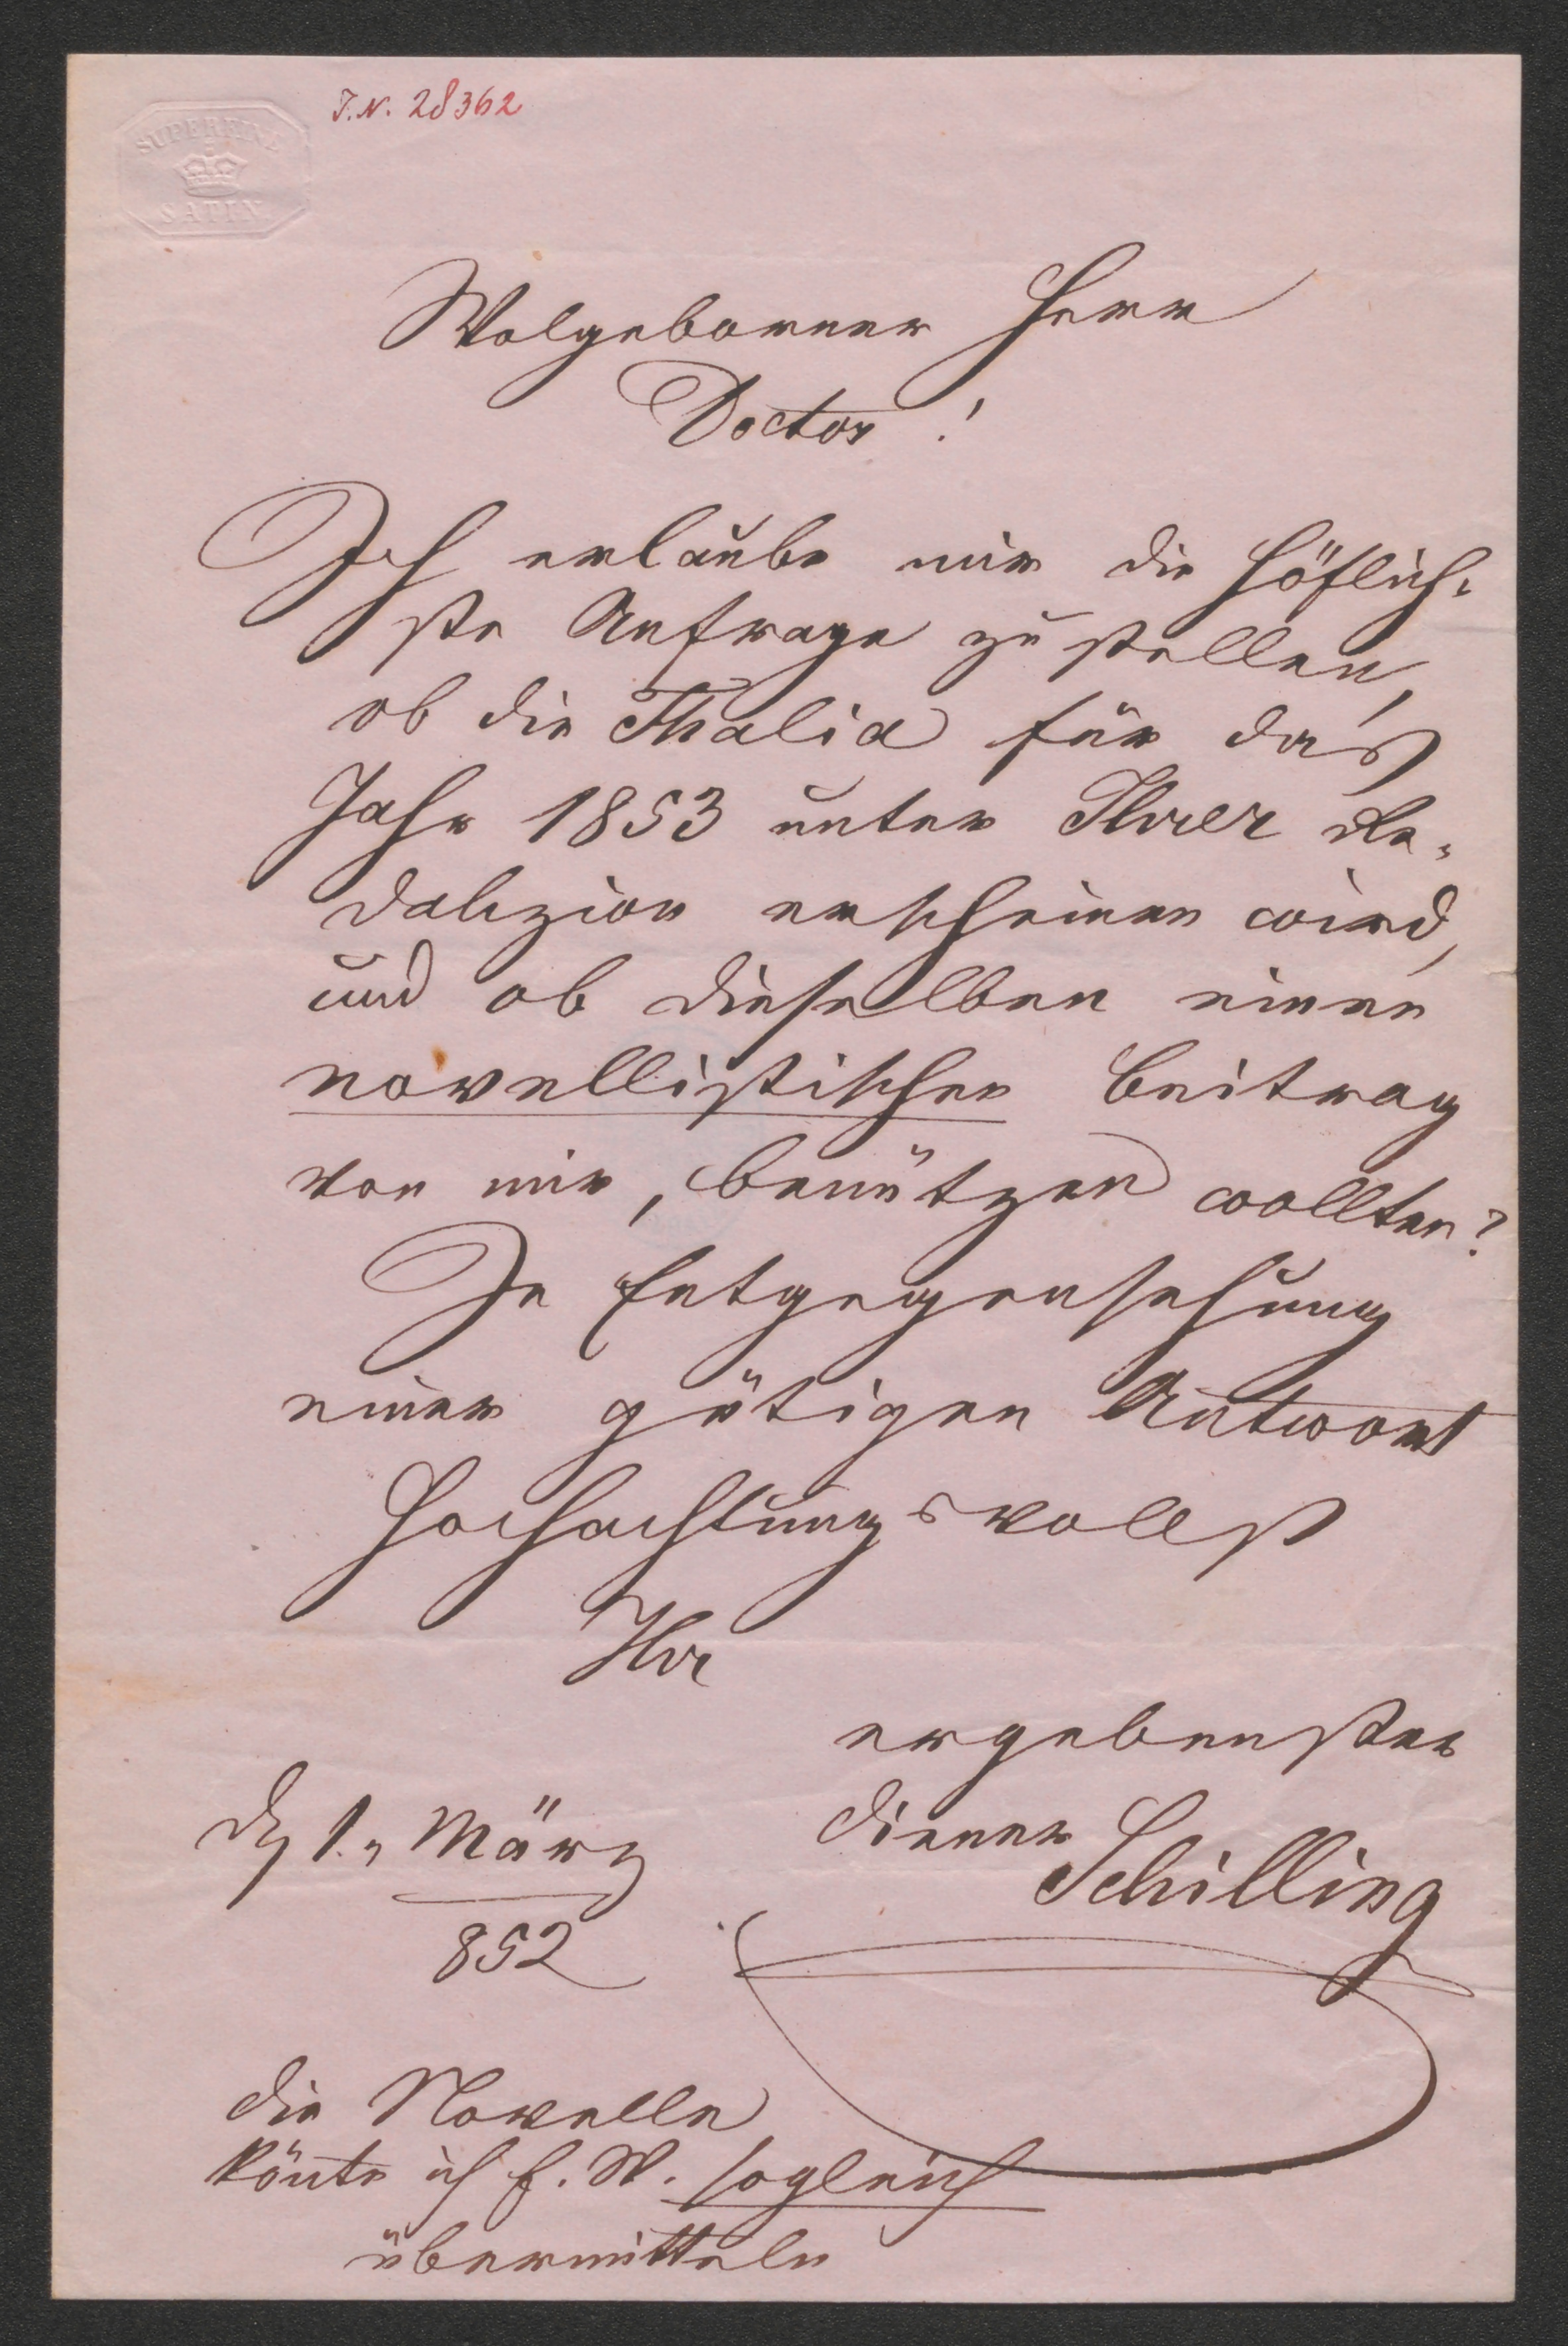 SUPERFINE
SATIN
I.N. 28362
Wolgeborner Herr
Doctor!
Ich erlaube mir die höflich-
ste Anfrage zu stellen,
ob die Thalia für das
Jahr 1853 unter Ihrer Re-
dakzion erscheinen wird,
und ob dieselben einen
novellistischen Beitrag
von mir, benützen wollten?
In Entgegensehung
einer gütigen Antwort
Hochachtungsvollst
Ihr
ergebenster
Diener
Schilling
d 1. März
852
Die Novelle
könte ich E. W. sogleich
übermitteln